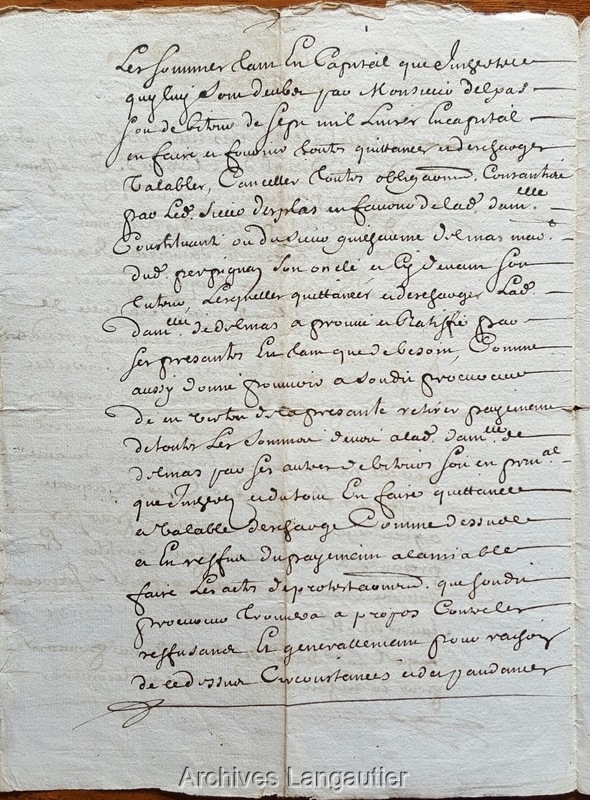 Les sommes tant En Capital que Interetz
quy luy sont deubes par Monsieur delpas
son debiteur de sept mil Livres En capital
en faire et fournir toutes quittances et descharges
Valables, Canceller toutes obligaõns Consanties
par Led. Sieur desplas en faveur de lad. dam.lle
Constituant ou du sieur guilhaume delmas mar.
dud. perpignan son oncle et Cy devant son
tuteur, Lesquelles quittances et descharges Lad.
dam.lle de delmas aprouve et Ratiffie par
ses presantes En tant que de besoin, Comme
aussy donne pouvoir a sondit procureur
de en vertu de la presante retirer payement
de toutes Les sommes deues a lad. dam.lle de
delmas par ses autres debiteurs soit en prin.al
que Interetz et du tout En faire quittance
et Valable descharge Comme dessus
et En reffus du payement a lamiable
faire Les actes de protestaõns que sondit
procureur trouvera a propos Contre les
reffusans Et generallement pour raison
de ce dessus Circonstances et depandances
Archives Langautier